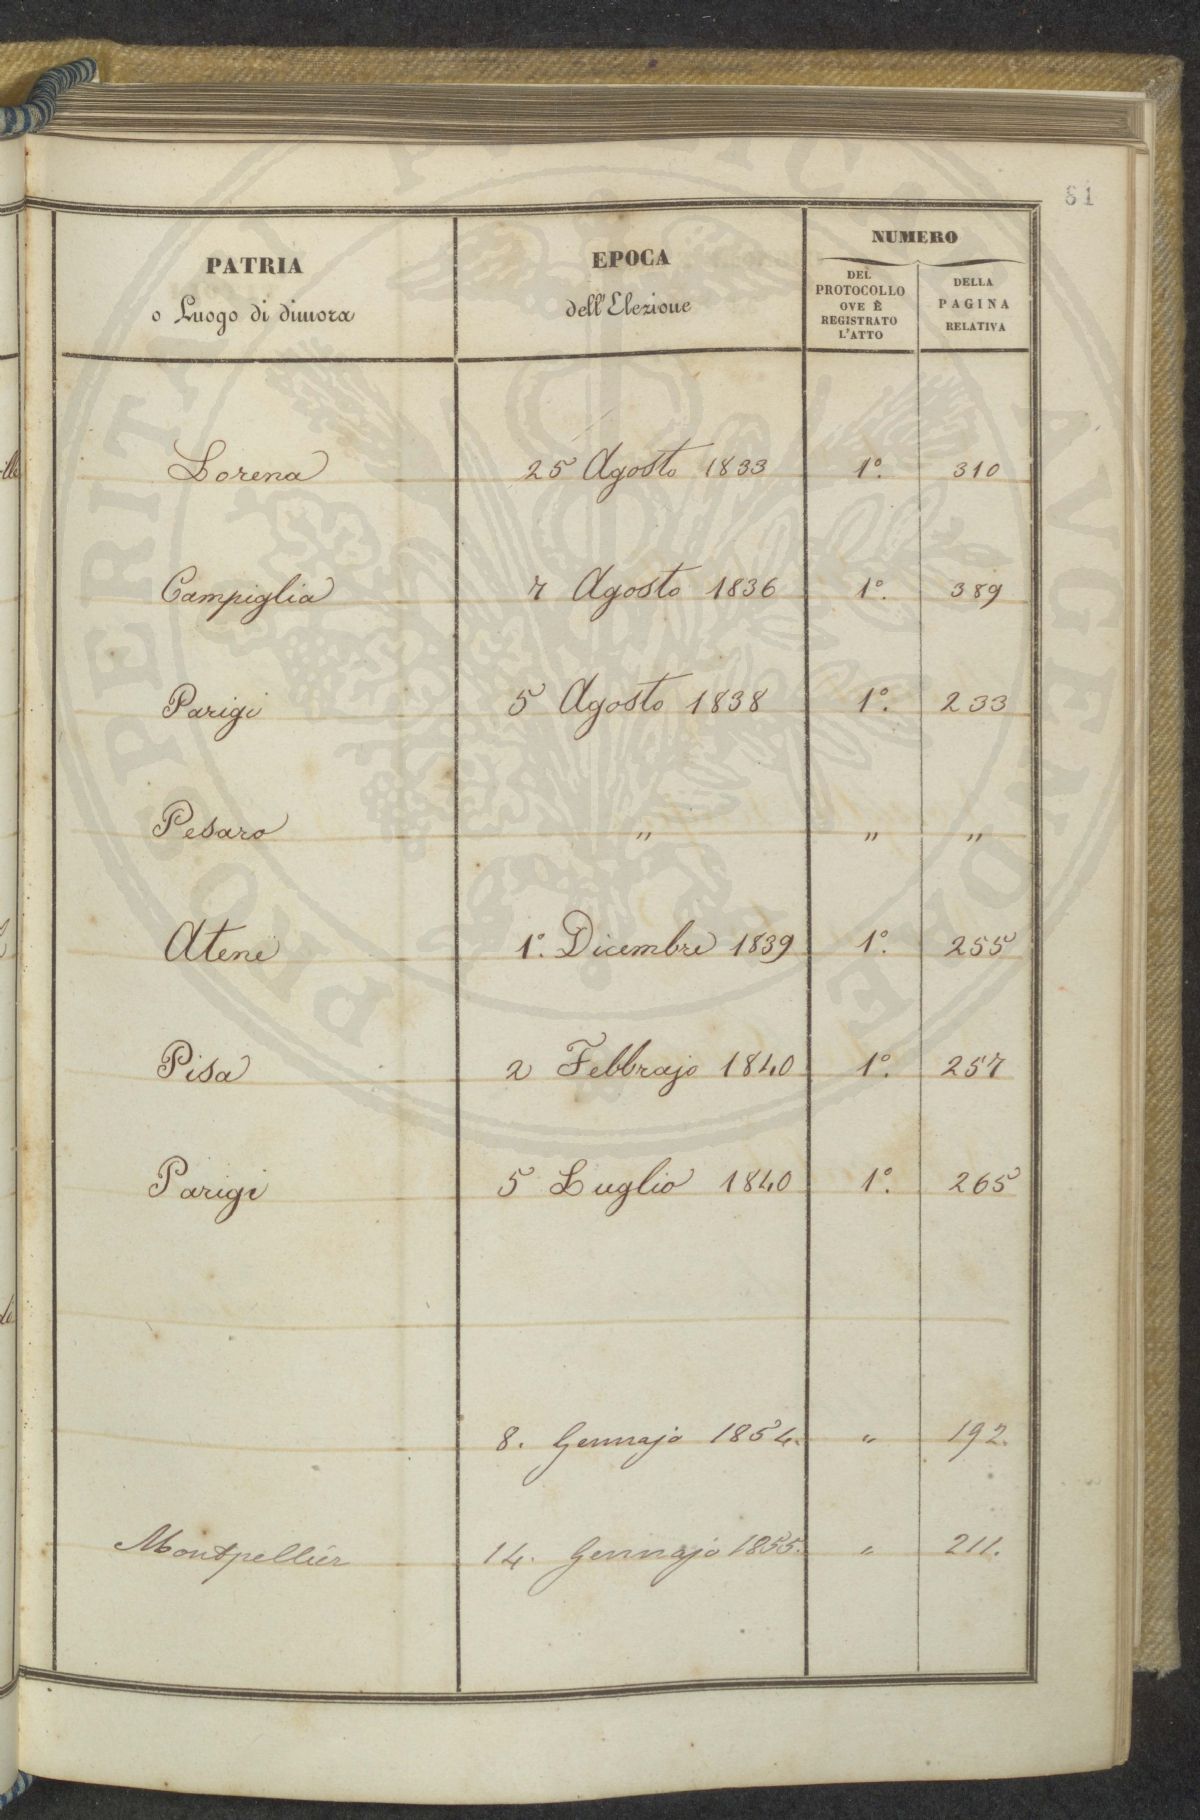 61
PATRIA
o Luogo di dimora
EPOCA
dell'Elezione
NUMERO
DEL
PROTOCOLLO
OVE È
REGISTRATO
L'ATTO
DELLA
PAGINA
RELATIVA
Lorena 25 Agosto 1833 1º. 310
Campiglia 7 Agosto 1836 1º. 389
Parigi 5 Agosto 1838 1º. 233
Pesaro " " "
Atene 1º. Dicembre 1839 1º. 255
Pisa 2 Febbrajo 1840 1º. 257
Parigi 5 Luglio 1840 1º. 265
8. Gennajo 1854. " 192.
Montpellier 14. Gennajo 1855. " 211.
PROSPERITATI PUBLICAE AUGENDAE